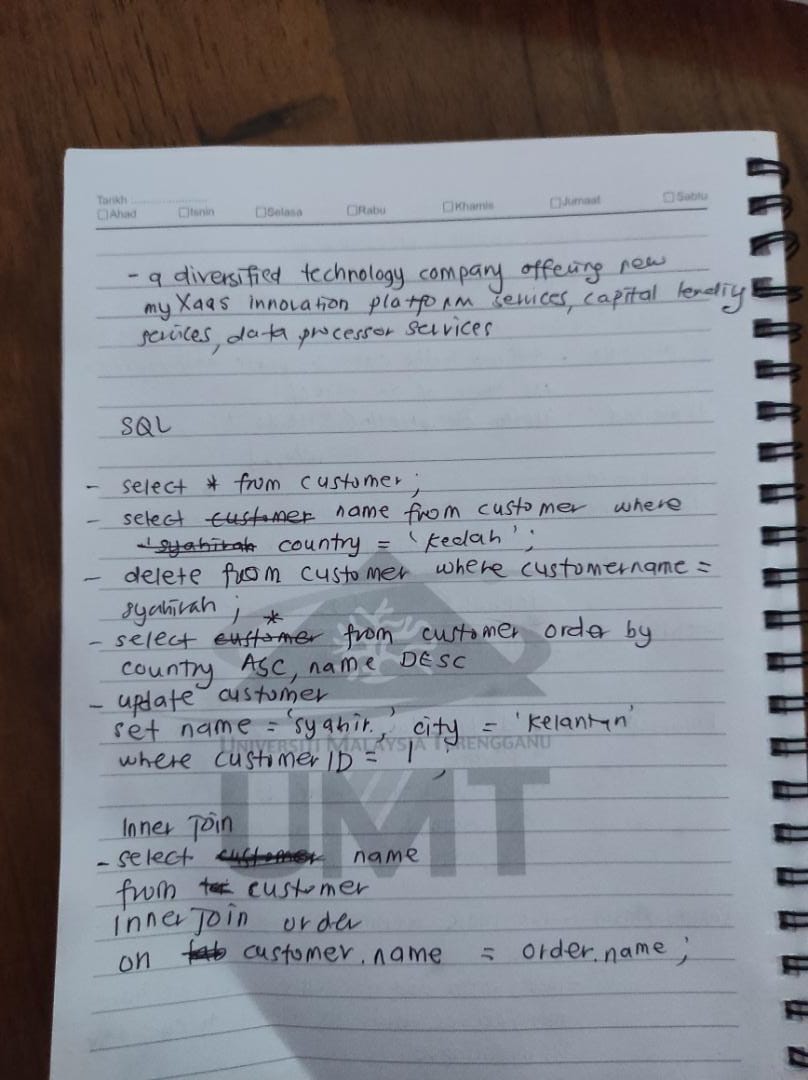 Tarikh
Ahad Isnin Selasa Rabu Khamis Jumaat Sabtu
- a diversified technology company offering new
my Xaas innovation platform services, capital lending
services, data processor services
SQL
- select * from customer;
- select customer name from customer where
'syahirah country = 'kedah';
- delete from customer where customername =
syahirah ;
*
- select customer from customer order by
country ASC, name DESC
- update customer
set name = 'syahir,' city = 'kelantan'
UNIVERSITI MALAYSIA TERENGGANU
where customer ID = 1 ;
UMT
Inner Join
- select customer name
from customer
Inner Join order
on tab customer.name = order.name;